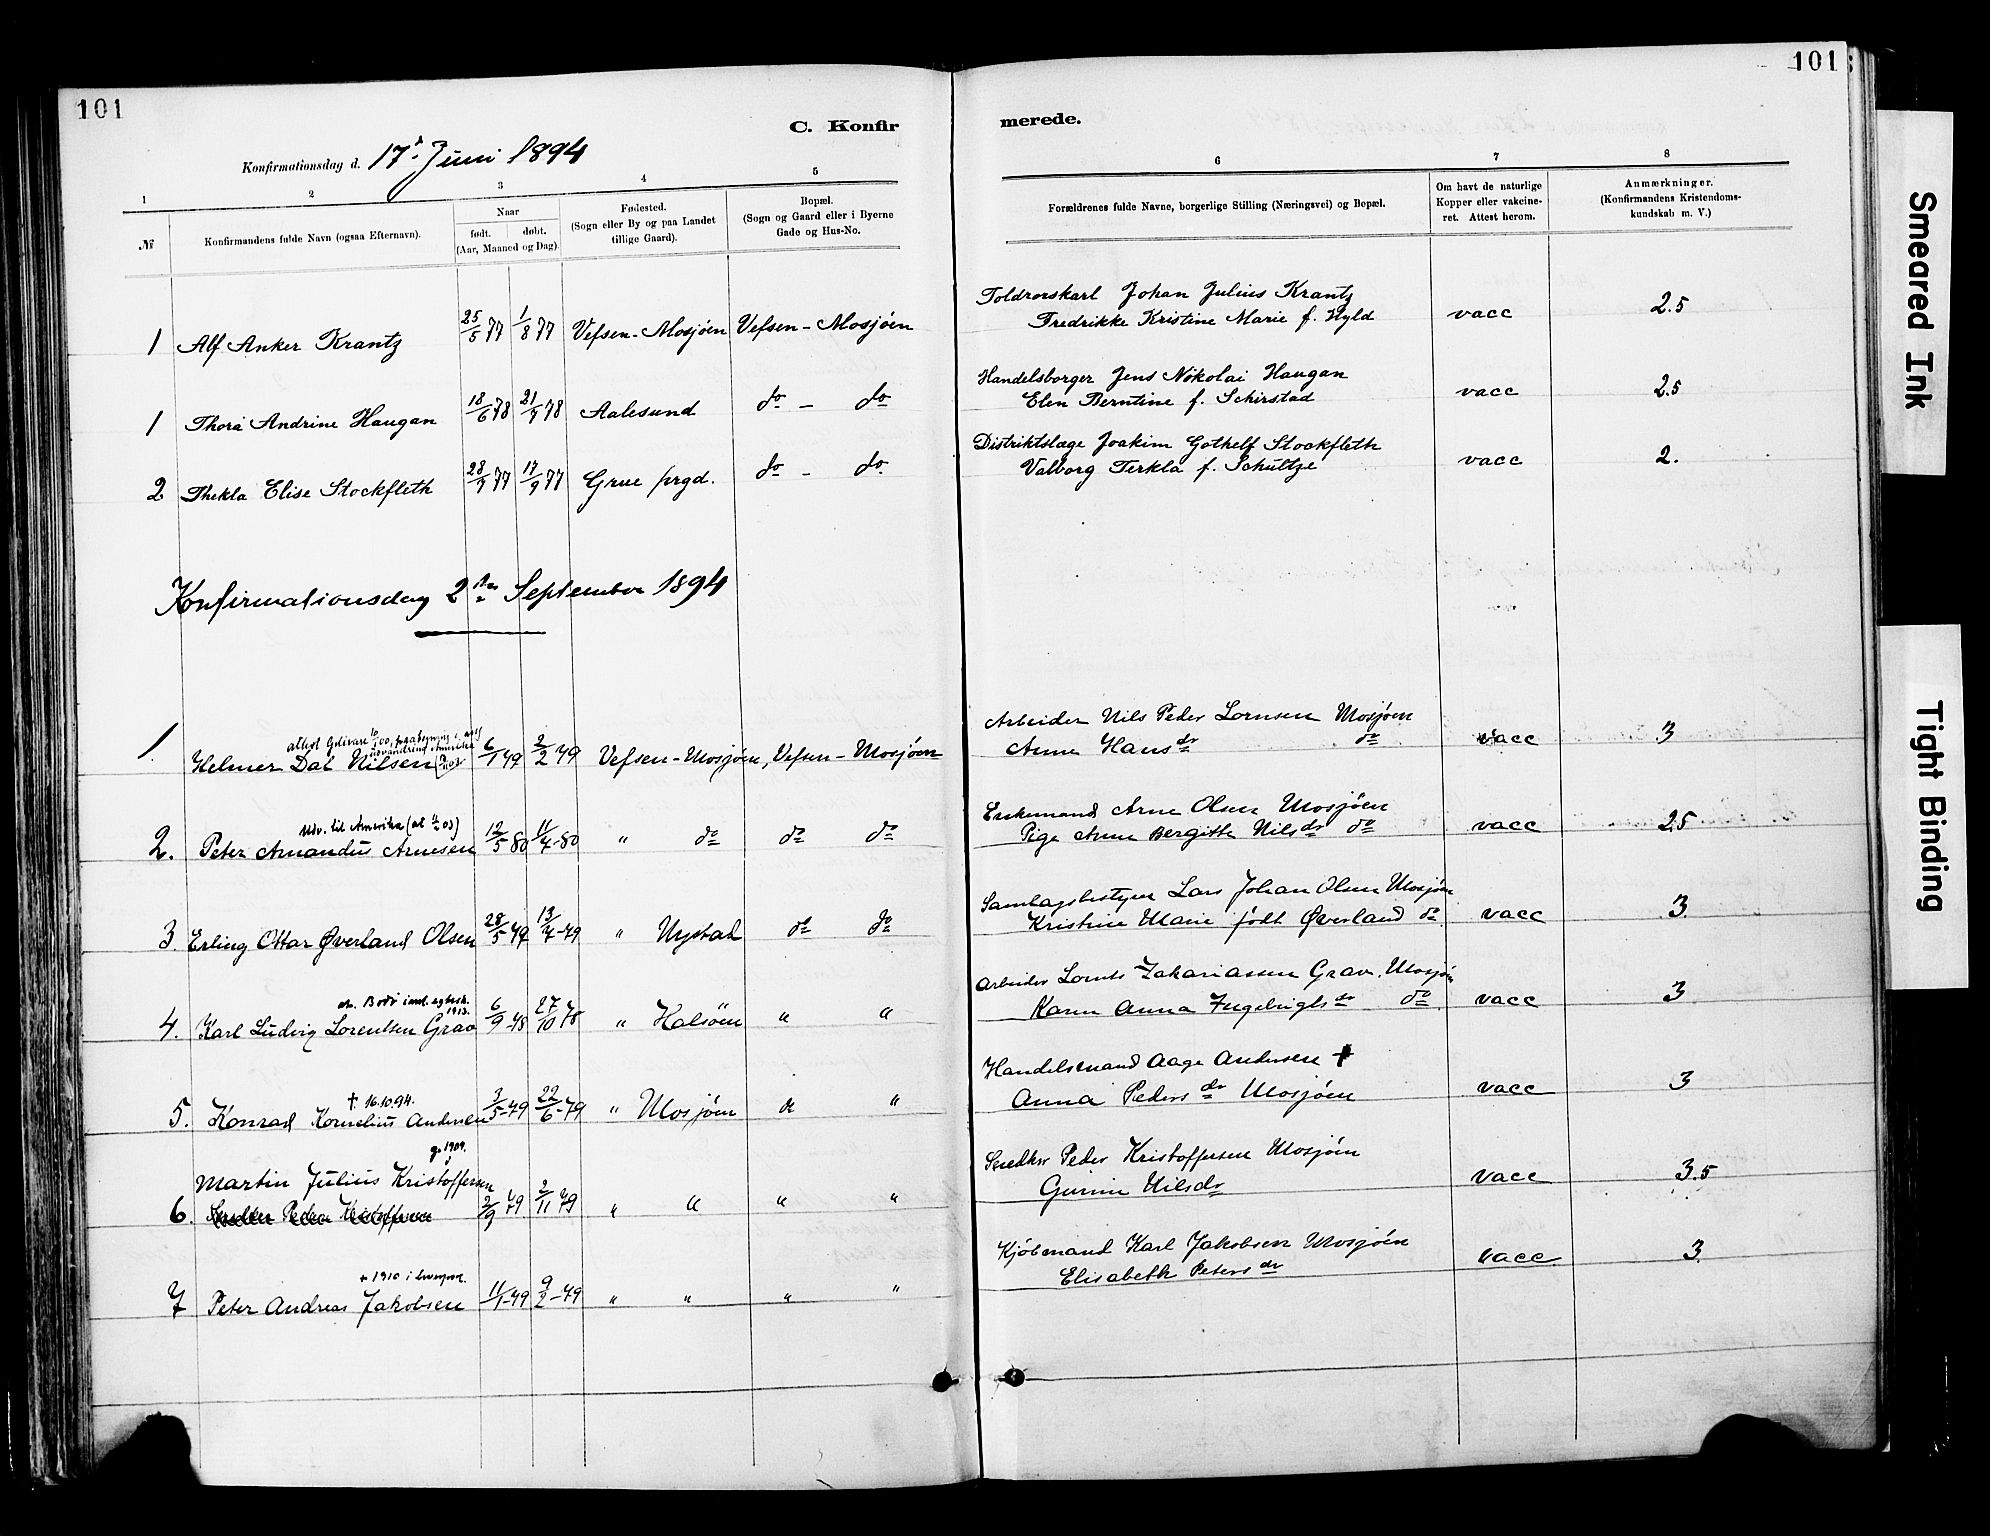 101
C. Konfir
Konfirmationsdag d. 17de Juni 1894
1 2 3 4 5
№
Konfirmandens fulde Navn (ogsaa Efternavn).
Naar
født. døbt.
(Aar, Maaned og Dag).
Fødested.
(Sogn eller By og paa Landet
tillige Gaard).
Bopæl.
(Sogn og Gaard eller i Byerne
Gade og Hus-No.
1 Alf Anker Krantz 25/5 77 1/8 77 Vefsen-Mosjøen Vefsen-Mosjøen
1 Thora Andrine Haugan 18/6 78 21/7 78 Aalesund do - do
2 Thekla Elise Stockfleth 28/7 77 17/9 77 Grue prgd. do - do
Konfirmationsdag 2den September 1894
attest Gelivare
1. Helmer Dal Nilsen 6/1 79 2/2 79 Vefsen-Mosjøen, Vefsen-Mosjøen
Udv. til Amerika
2. Peter Amandus Arnesen 12/5 80 11/7-80 " do do do
3 Erling Ottar Øverland Olsen 28/5 79 13/7-79 " Nystad do do
at. Bodø
1913.
4. Karl Ludvig Lorentsen Grav 6/9-78 27/10 78 " Halsøen " "
† 16.10.94.
5. Konrad Kornelius Andersen 3/5-79 22/6-79 " Mosjøen " "
g. 1909.
Martin Julius Kristoffersen
6. 2/9 79 2/11 79 " " " "
+ 1910 i Liverpool.
7 Peter Andreas Jakobsen 11/1-79 9/2-79 " " " "
101
merede.
6 7 8
Forældrenes fulde Navne, borgerlige Stilling (Næringsvei) og Bopæl.
Om havt de naturlige
Kopper eller vakcine-
ret. Attest herom.
Anmærkninger.
(Konfirmandens Kristendoms-
kundskab m. V.)
Toldrorskarl Johan Julius Krantz
Fredrikke Kristine Marie f. Hyld vacc 2.5
Handelsborger Jens Nikolai Haugan
Elen Berntine f. Schirstad vacc 2.5
Distriktslæge Joakim Gothelf Stockfleth
Valborg Terkla f. Schultze vacc 2.
Arbeider Nils Peder Lornsen Mosjøen
Anne Hansdr do vacc 3
Enkemand Arne Olsen Mosjøen
Pige Anne Bergitte Nilsdr do vacc 2.5
Samlagsbestyrer Lars Johan Olsen Mosjøen
Kristine Marie født Øverland do vacc 3
Arbeider Lornts Zakariassen Grav. Mosjøen
Karen Anna Ingebrigtsdr do vacc 3
Handelsmand Aage Andersen †
Anna Pedersdr Mosjøen vacc 3
Snedker Peder Kristoffersen Mosjøen
Gurine Nilsdr vacc 3.5
Kjøbmand Karl Jakobsen Mosjøen
Elisabeth Petersdr vacc 3
Smeared Ink
Tight Binding